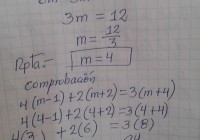 3m = 12
m = 12/3
Rpta: m = 4
comprobación
4(m-1)+2(m+2)=3(m+4)
4(4-1)+2(4+2)=3(4+4)
4(3) +2(6) =3(8)